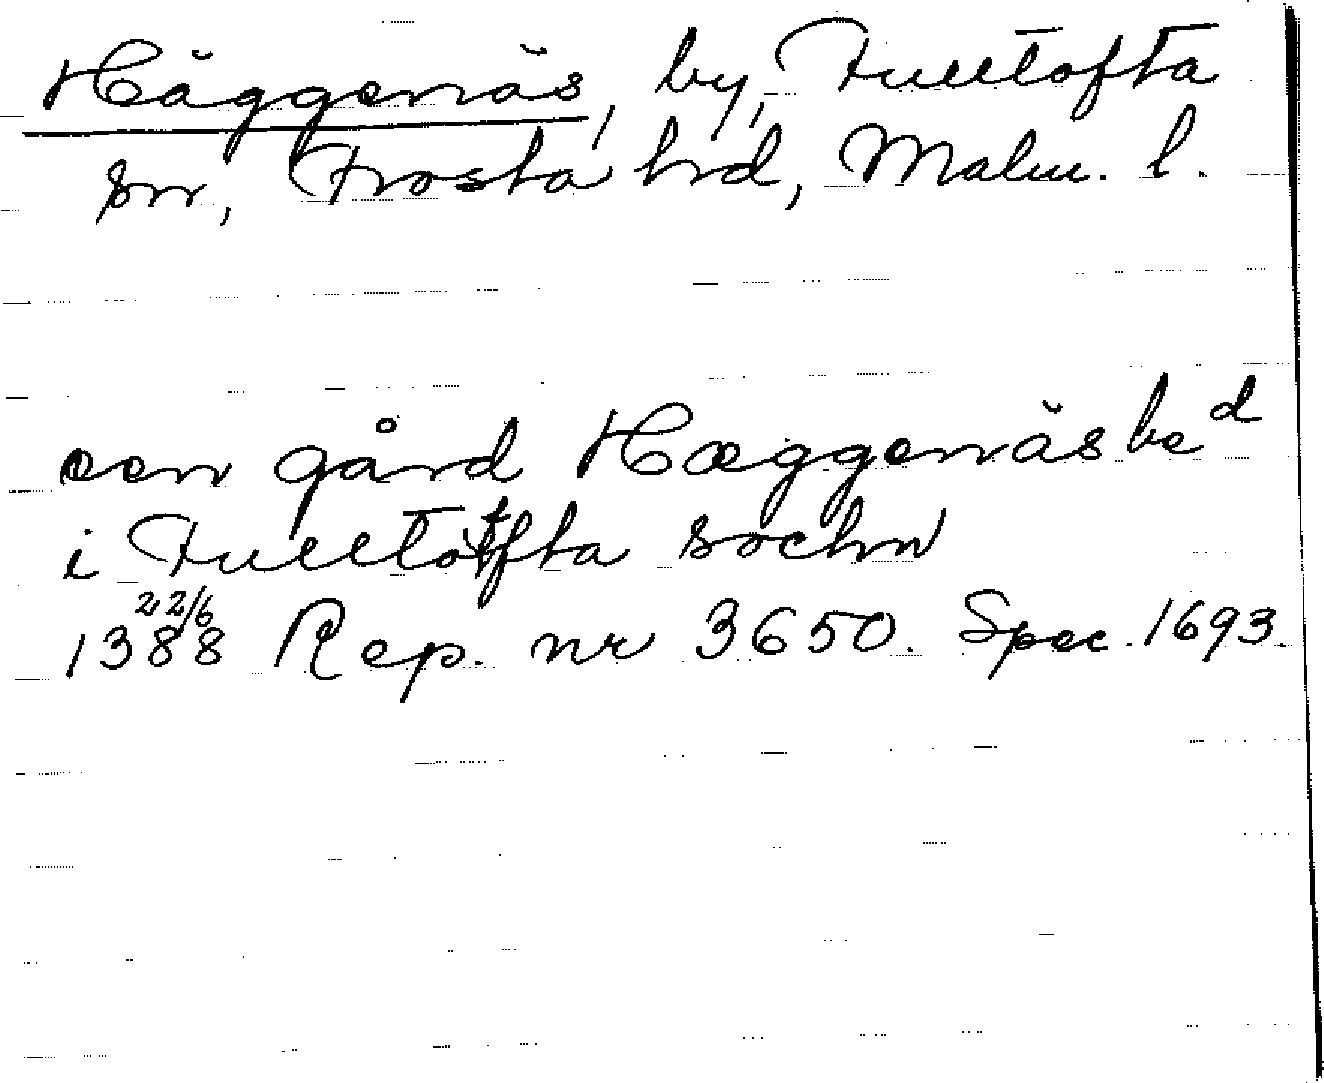 Häggenäs, by, Fulltofta
sn, Frosta hrd, Malm. l.
een gård Hæggenäs be^d
i Fulltofta sochn
1388 22/6 Rep. nr 3650. Spec. 1693.